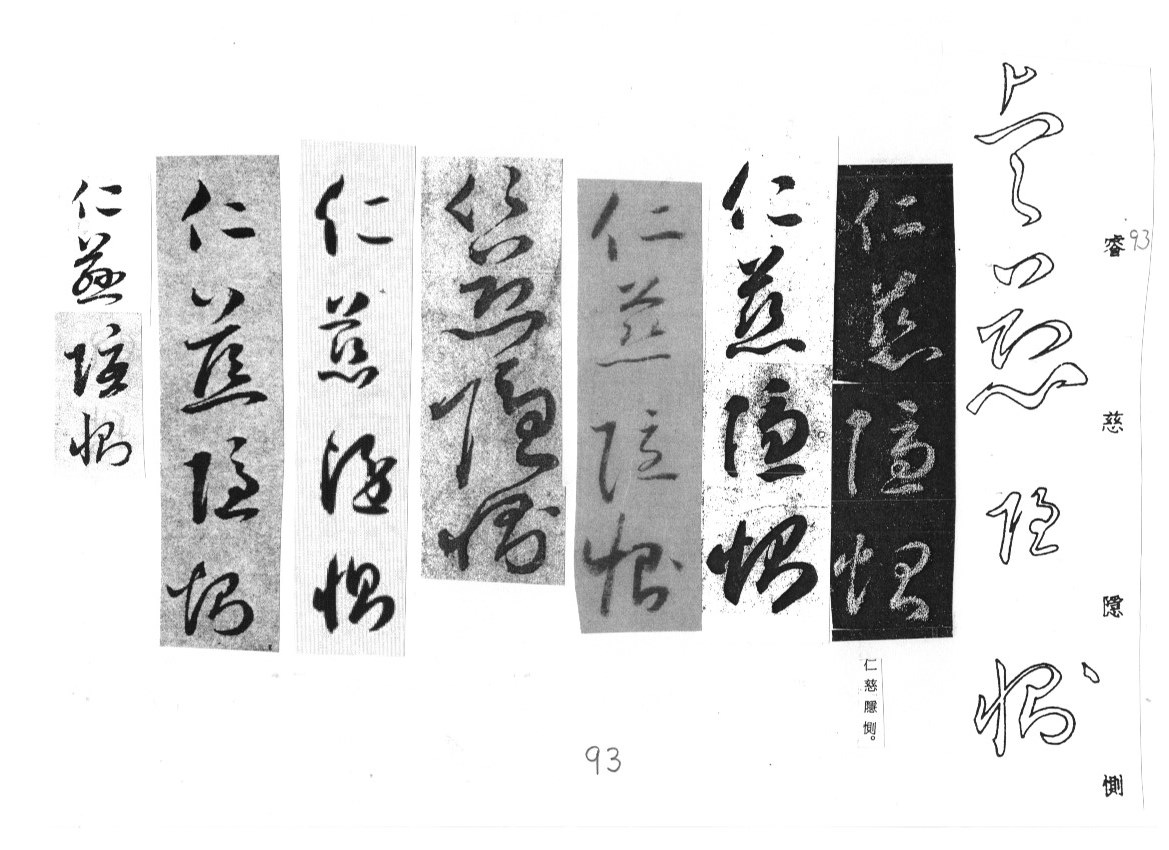 睿 93 慈 隱 惻
睿慈隱惻
仁慈隱惻
仁慈隱惻。
仁慈隱惻
仁慈隱惻
仁慈隱惻
仁慈隱惻
仁慈隱惻
仁慈隱惻
93